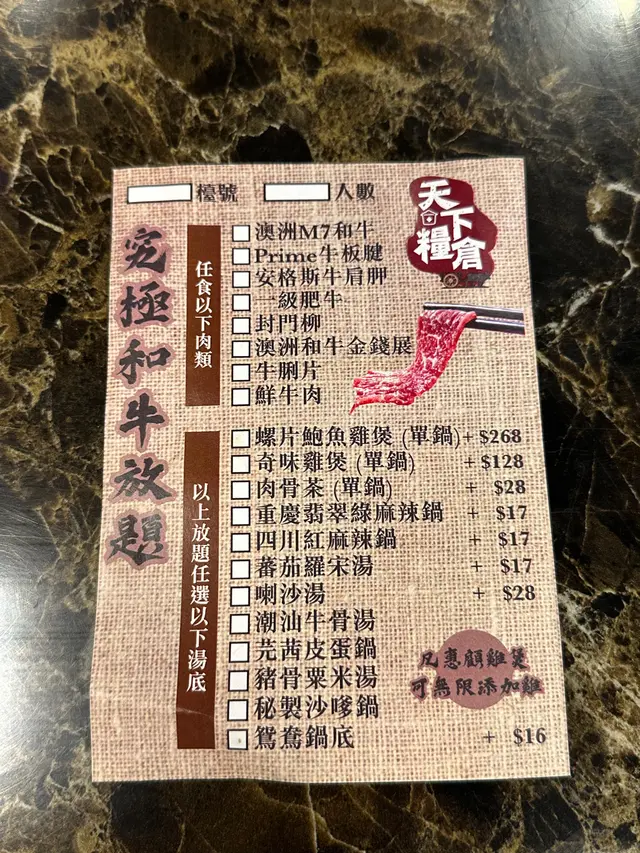 檯號 人數
天下糧倉
究極和牛放題
任食以下肉類
澳洲M7和牛
Prime牛板腱
安格斯牛肩胛
一級肥牛
封門柳
澳洲和牛金錢展
牛脷片
鮮牛肉
以上放題任選以下湯底
螺片鮑魚雞煲 (單鍋)+ $268
奇味雞煲 (單鍋) + $128
肉骨茶 (單鍋) + $28
重慶翡翠綠麻辣鍋 + $17
四川紅麻辣鍋 + $17
蕃茄羅宋湯 + $17
喇沙湯 + $28
潮汕牛骨湯
芫茜皮蛋鍋
豬骨粟米湯
秘製沙嗲鍋
鴛鴦鍋底 + $16
凡惠顧雞煲
可無限添加雞